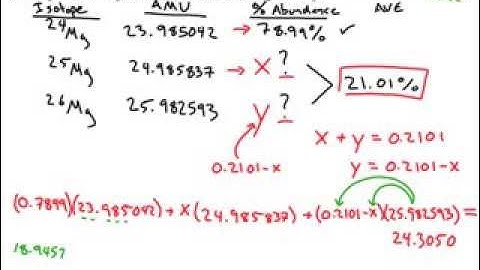 Isotope AMU % Abundance AVE
24Mg 23.985042 → 78.99% ✓
25Mg 24.985837 → X ?
21.01%
26Mg 25.982593 y ?
X + y = 0.2101
0.2101-x y = 0.2101-x
(0.7899)(23.985042)+x(24.985837)+(0.2101-x)(25.982593)=
24.3050
18.9457